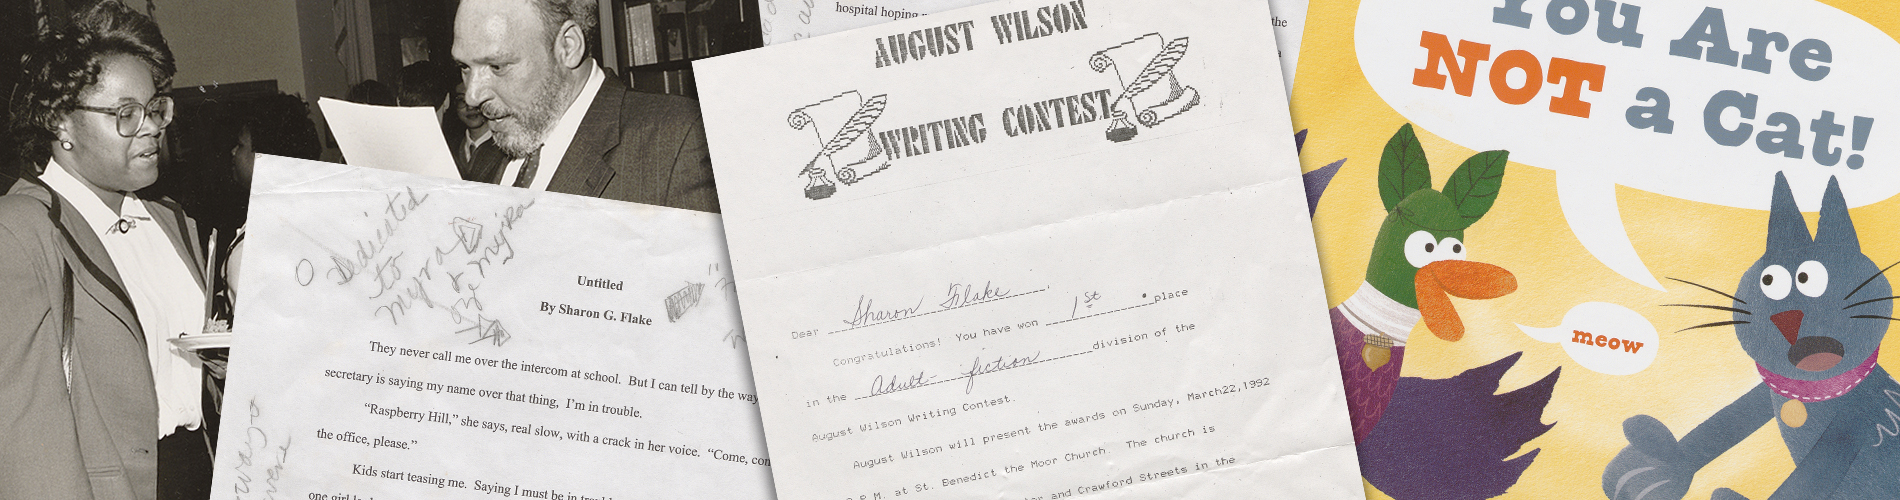 hospital hoping
the
a
Dedicated
to
Myra
& Myra
Untitled
By Sharon G. Flake
They never call me over the intercom at school. But I can tell by the way
secretary is saying my name over that thing, I'm in trouble.
"Raspberry Hill," she says, real slow, with a crack in her voice. "Come, con
the office, please."
Kids start teasing me. Saying I must be in
one girl
AUGUST WILSON
WRITING CONTEST
Dear Sharon Flake
Congratulations! You have won 1st place
in the Adult-fiction division of the
August Wilson Writing Contest.
August Wilson will present the awards on Sunday, March22,1992
P.M. at St. Benedict the Moor Church. The church is
and Crawford Streets in the
You Are
NOT a Cat!
meow